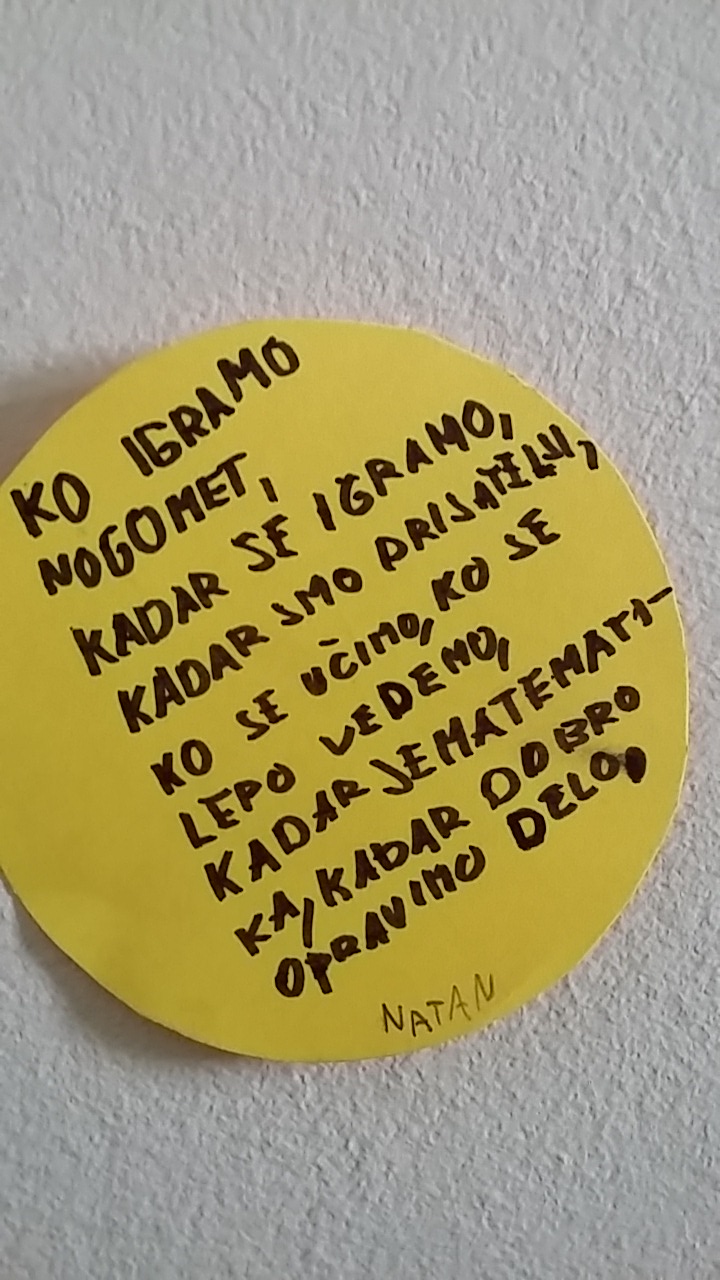 KO IGRAMO
NOGOMET,
KADAR SE IGRAMO,
KADAR SMO PRIJATELJI,
KO SE UČIMO, KO SE
LEPO VEDEMO,
KADAR JE MATEMATI-
KA, KADAR DOBRO
OPRAVIMO DELO.
NATAN